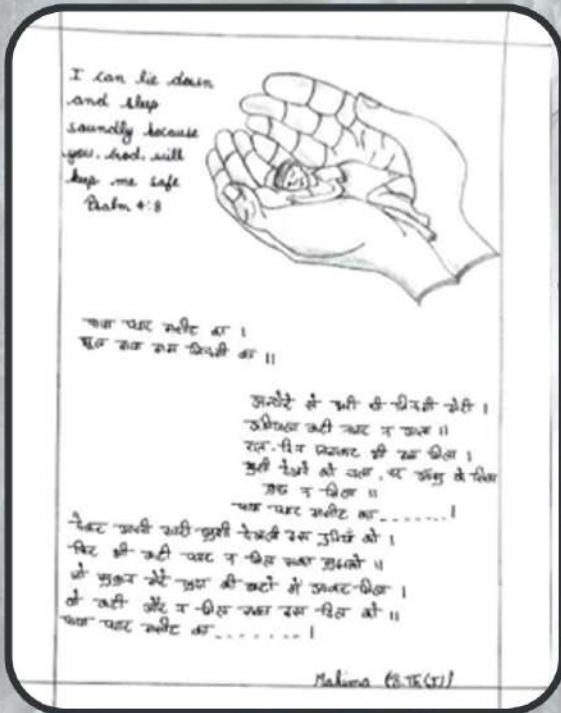 I can lie down
and sleep
soundly because
you, God, will
keep me safe
Psalm 4:8
पाया प्यार मसीह का ।
भूल गया गम जिंदगी का ॥
अन्धेरे से भरी थी जिन्दगी मेरी ।
कहीं नजर न आया ॥
रात-दिन भी ना मिला ।
खुशी देखने को चला, पर आँसू के सिवा
कुछ न मिला ॥
पाया प्यार मसीह का ........ ।
देकर अपनी सारी खुशी देखली इस दुनियाँ को ।
फिर भी कहीं प्यार न मिल सका मुझको ॥
जो सुकून मेरे प्रभु की बाहों में आकर मिला ।
वो कहीं और न मिल सका इस दिल को ॥
पाया प्यार मसीह का ........ ।
Mahima